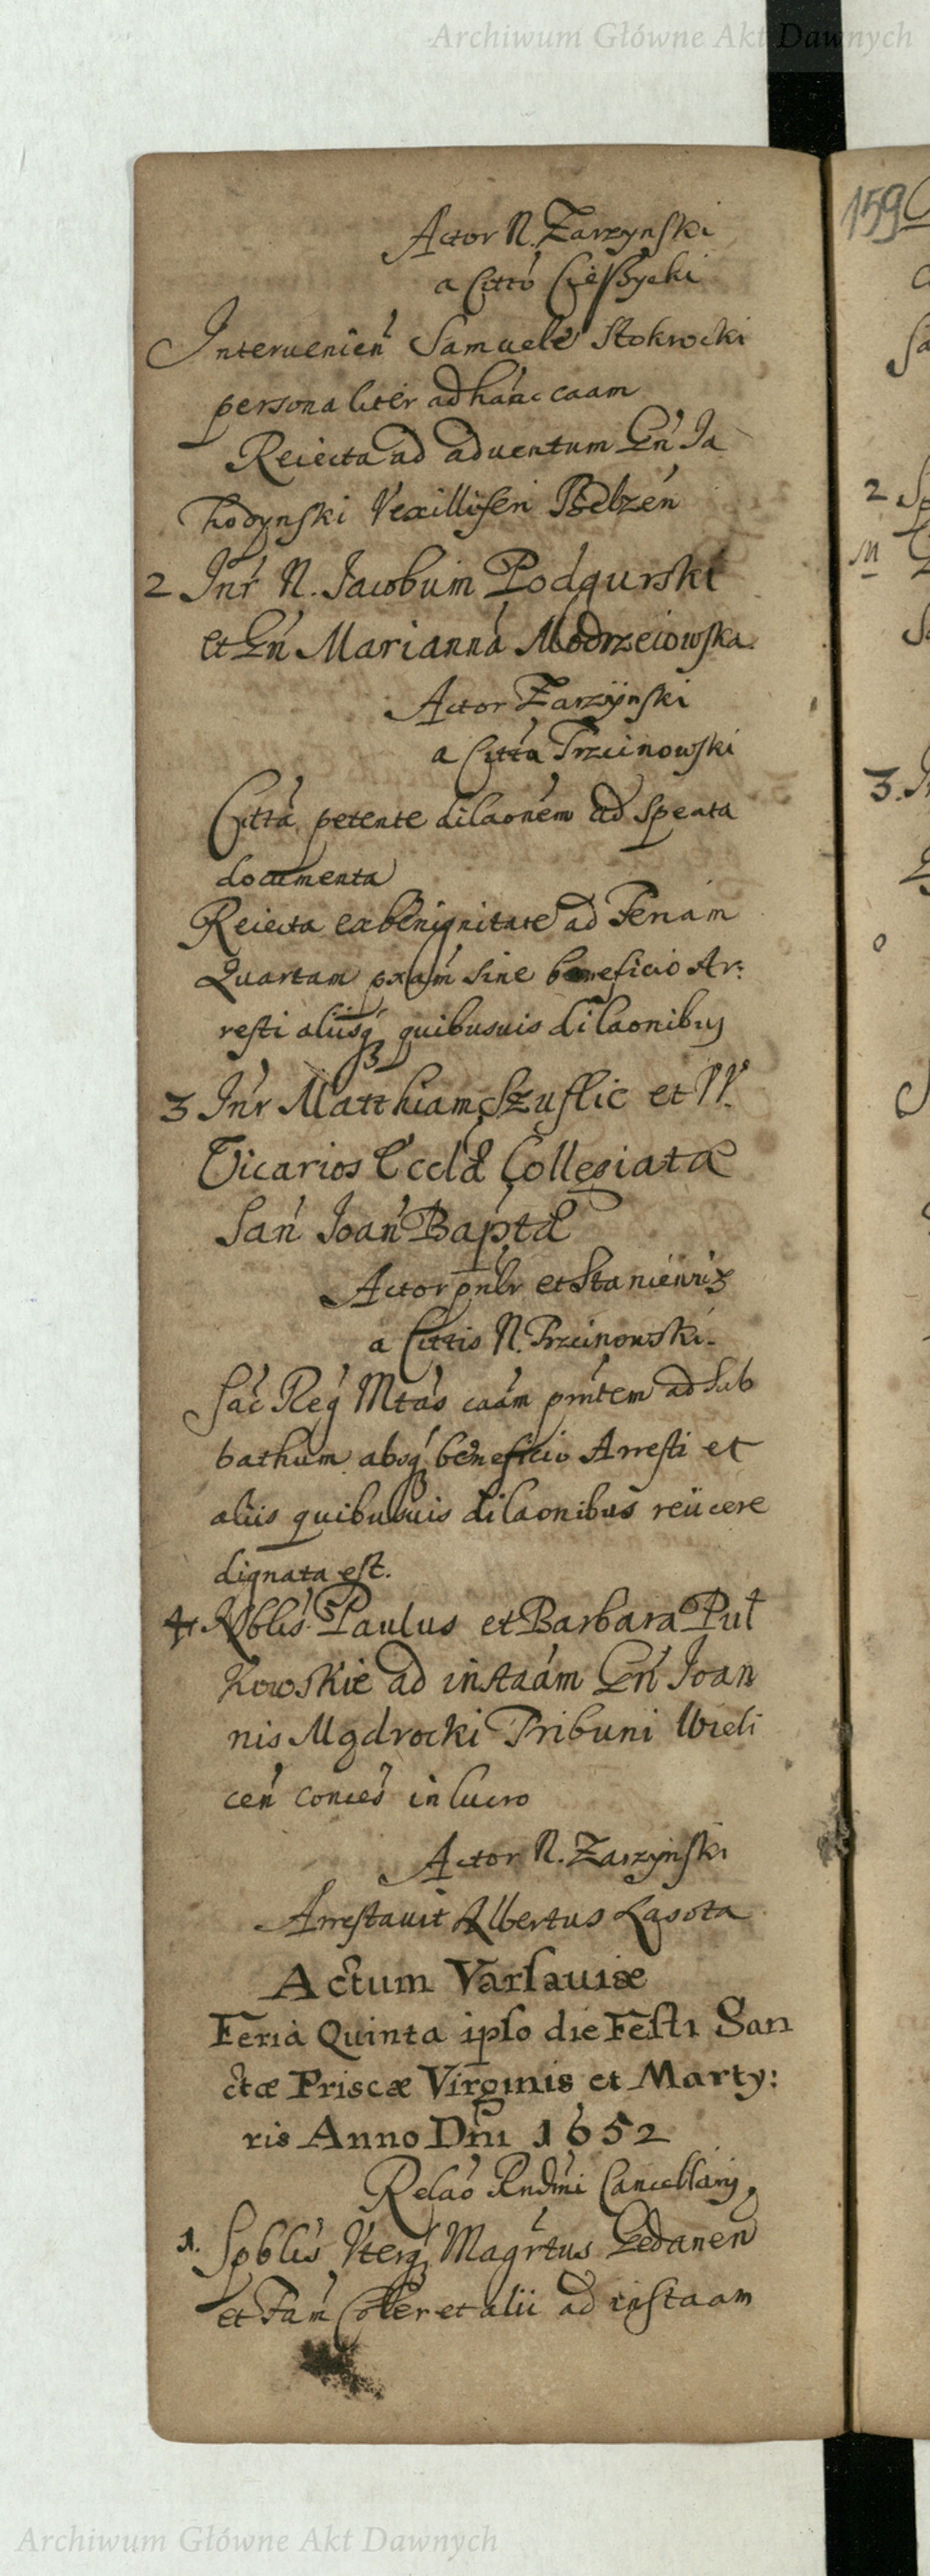 Archiwum Główne Akt Dawnych
Actor N. Zarzynski
a Citto
Intervenien Samuele Stokrocki
personaliter ad hanc caam
Reiecta ad aduentum Gn Ia
Vexilliferi Belzen
2 Inr N. Jacobum Podgurski
et Gn Marianna Modrzeiowska
Actor Zarzÿnski
a Citta Trzcinowski
Citta petente dilaonem ad
documenta
Reiecta ex benignitate ad Feriam
Quartam pxam sine beneficio Ar:
resti aliisq quibusuis dilaonibus
3 Inr Matthiam Szuflic et VV.
Vicarios Eccla Collegiata
San Joan Bapta
Actor pnlr et
a Cittis N. Trzcinowski.
Sac Reg Mtas caam pntem ad Sab
bathum absq beneficio Arresti et
aliis quibusuis dilaonibus reiicere
dignata est.
4. Nblis Paulus et Barbara Put
kowskie ad instaam Gn Joan
nis Mądrocki Tribuni Wieli
cen conces in lucro
Actor N. Zarzynski
Arrestauit Albertus Lasota
Actum Varsauiæ
Feria Quinta ipso die Festi San
ctæ Priscæ Virginis et Marty:
ris Anno Dni 1652
Relao Rndmi Cancellarij
1. Spblis Vterq Magrtus Gedanen
et Fam et alii ad instaam
159
2
M
3.
Archiwum Główne Akt Dawnych